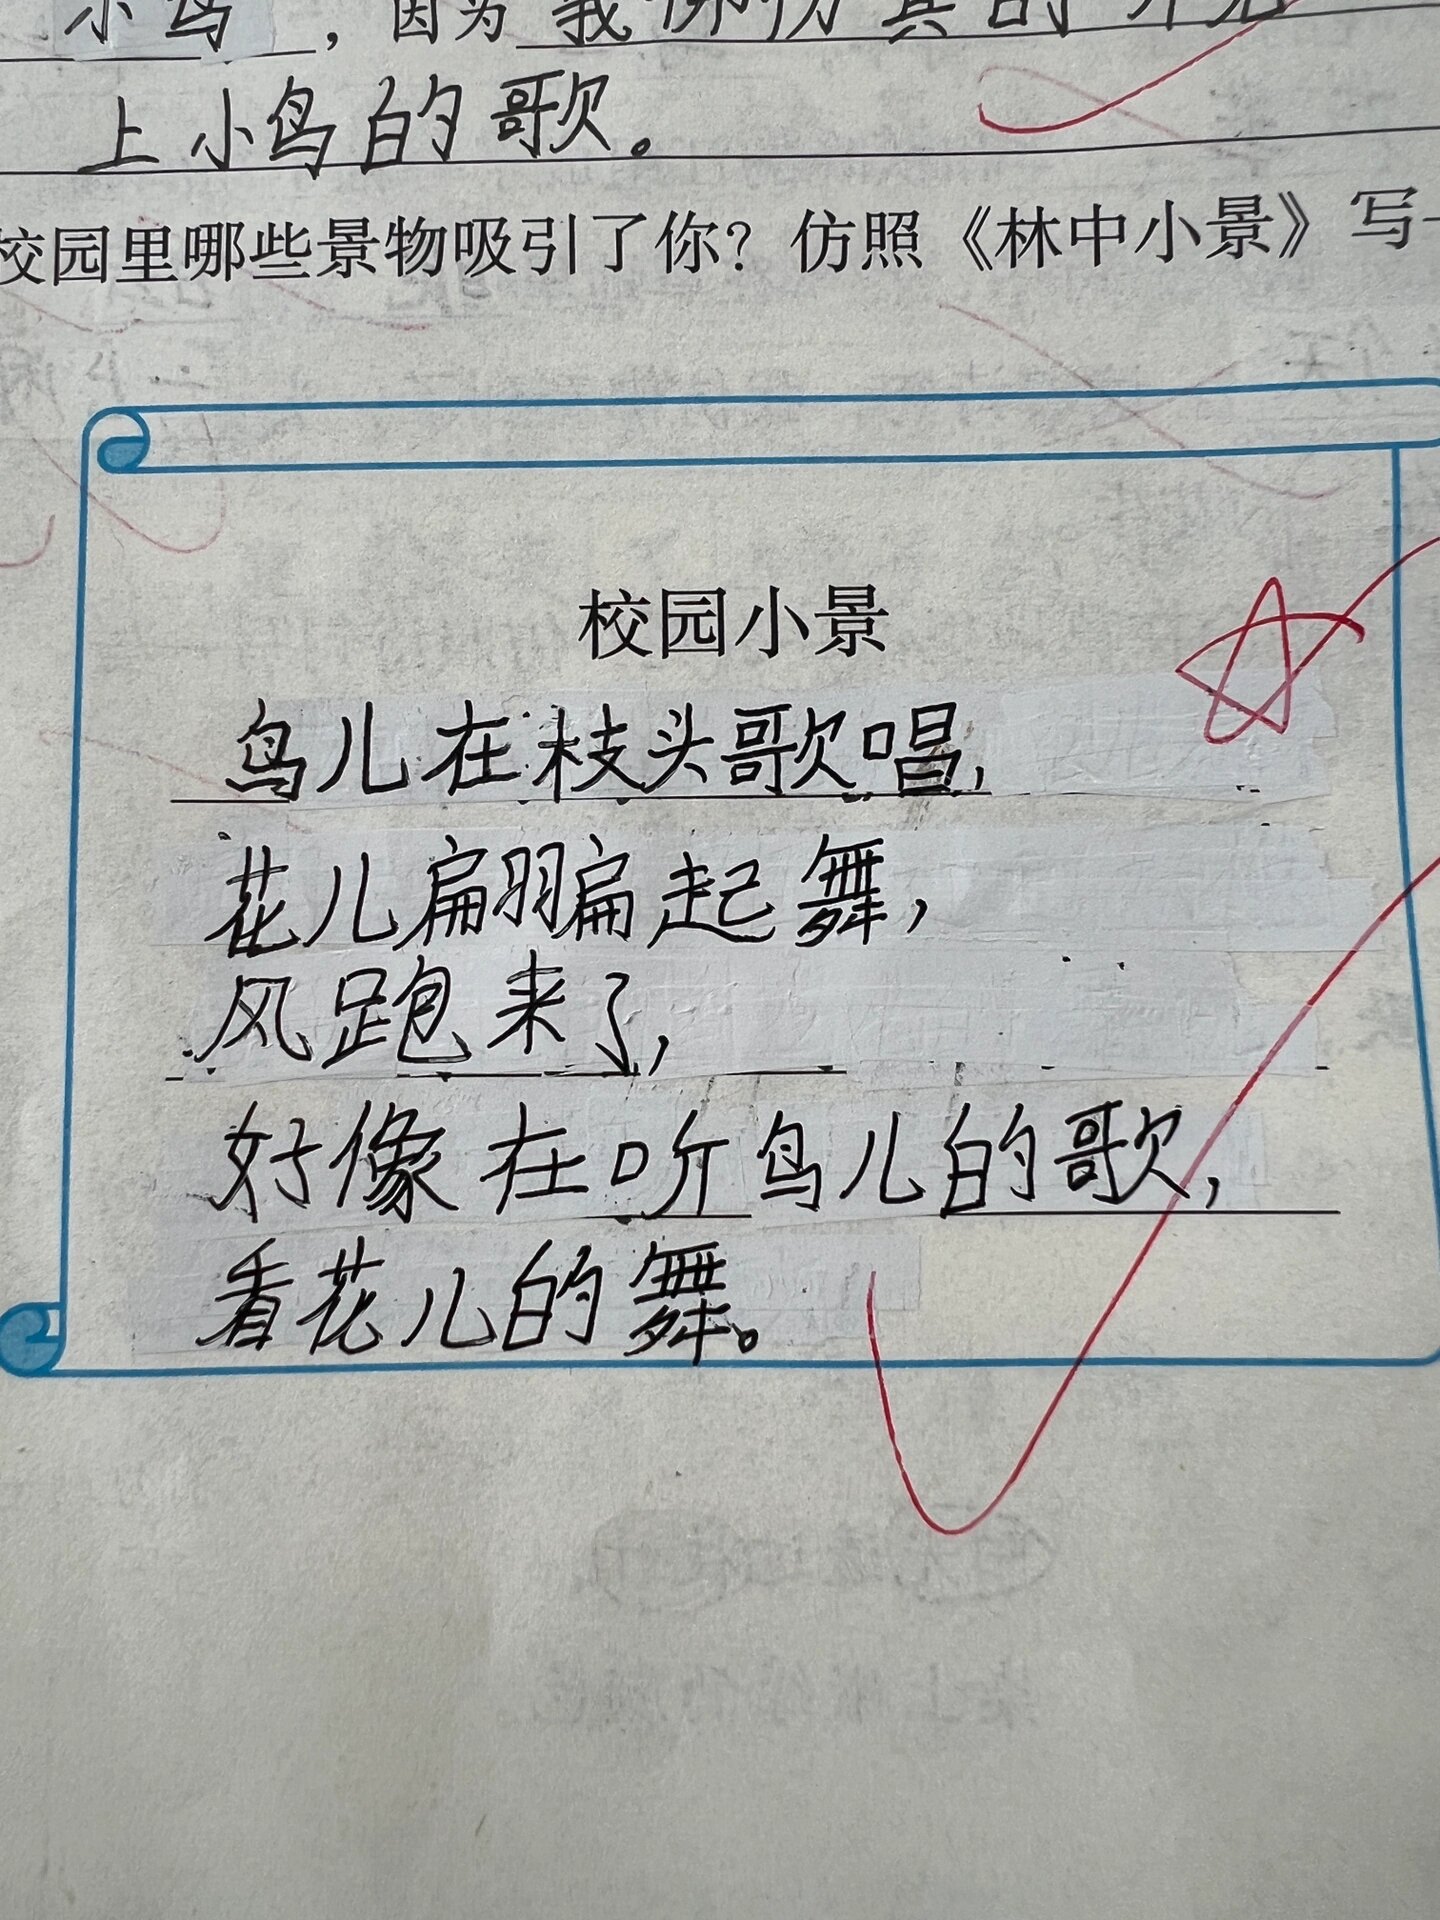 小鸟，因为我仿仿真的听见
上小鸟的歌。
校园里哪些景物吸引了你？仿照《林中小景》写一
校园小景
鸟儿在枝头歌唱，
花儿扁翩起舞，
风跑来了，
好像在听鸟儿的歌，
看花儿的舞。